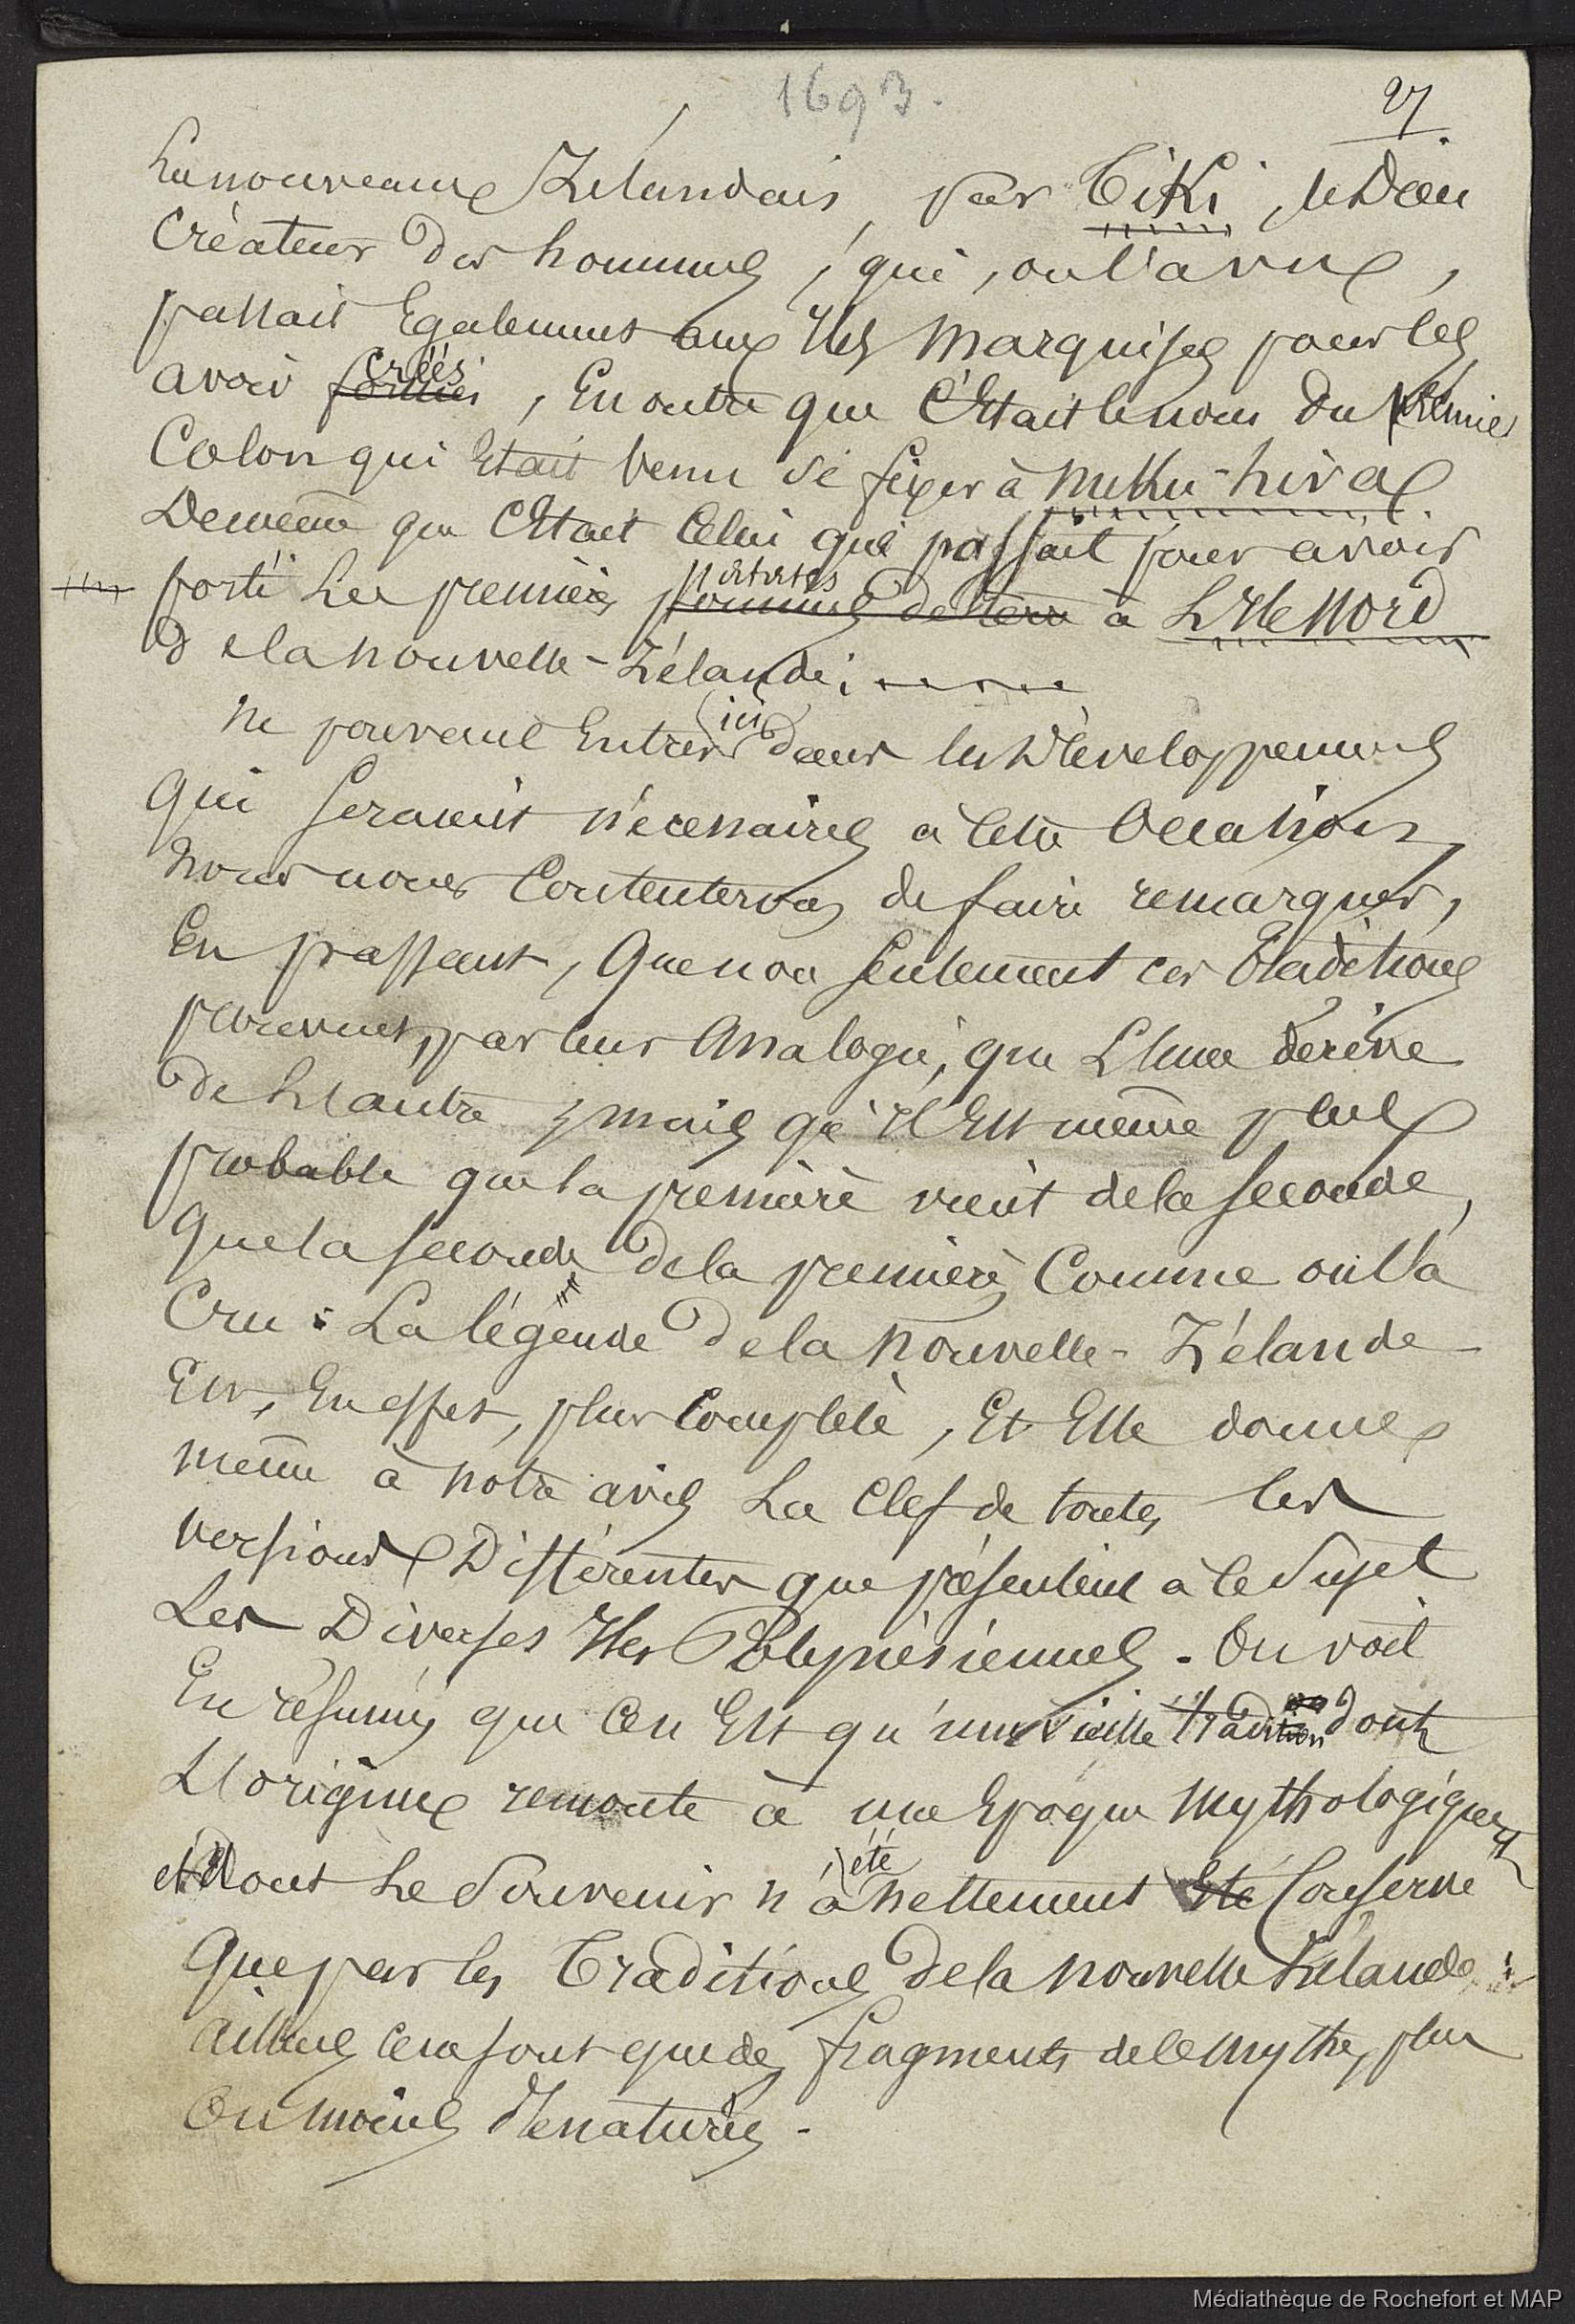 1693.
27
Les nouveaux Zélandais, par Tiki, le Dieu
Créateur des hommes, qui, on l'a vu,
passait Egalement aux Iles Marquises pour les
avoir formés créés, En outre que C'Etait le nom du premier
Colon qui Etait Venu se fixer à Nuku-hiva
De même que C'Etait Celui qui passait pour avoir
porté Les premières pommes de terre patates à L'Ile Nord
de la Nouvelle-Zélande.
Ne pouvant Entrer ici dans les Développements
qui Seraient nécessaires à cette Occasion,
nous nous Contenterons de faire remarquer,
En passant, Que non Seulement ces Traditions
prouvent, par leur Analogie, que L'Une dérive
de L'autre, mais qu'Il Est même plus
probable que la première vient de la Seconde,
que la Seconde de la première, Comme on l'a
Cru : La légende de la Nouvelle-Zélande
Est, En effet, plus Complète, Et Elle donne
même à notre avis La Clef de toutes les
versions Différentes que présentent à ce Sujet
Les Diverses Iles Polynésiennes. On voit
En résumé, que Ce n'Est qu'une vieille tradition dont
L'origine remonte à une Epoque Mythologique
et dont Le Souvenir n'a été nettement Eté Conservé
Que par les Traditions de la Nouvelle Zélande :
ailleurs ce ne sont que des fragments de ce Mythe, plus
Ou moins Dénaturés.
Médiathèque de Rochefort et MAP